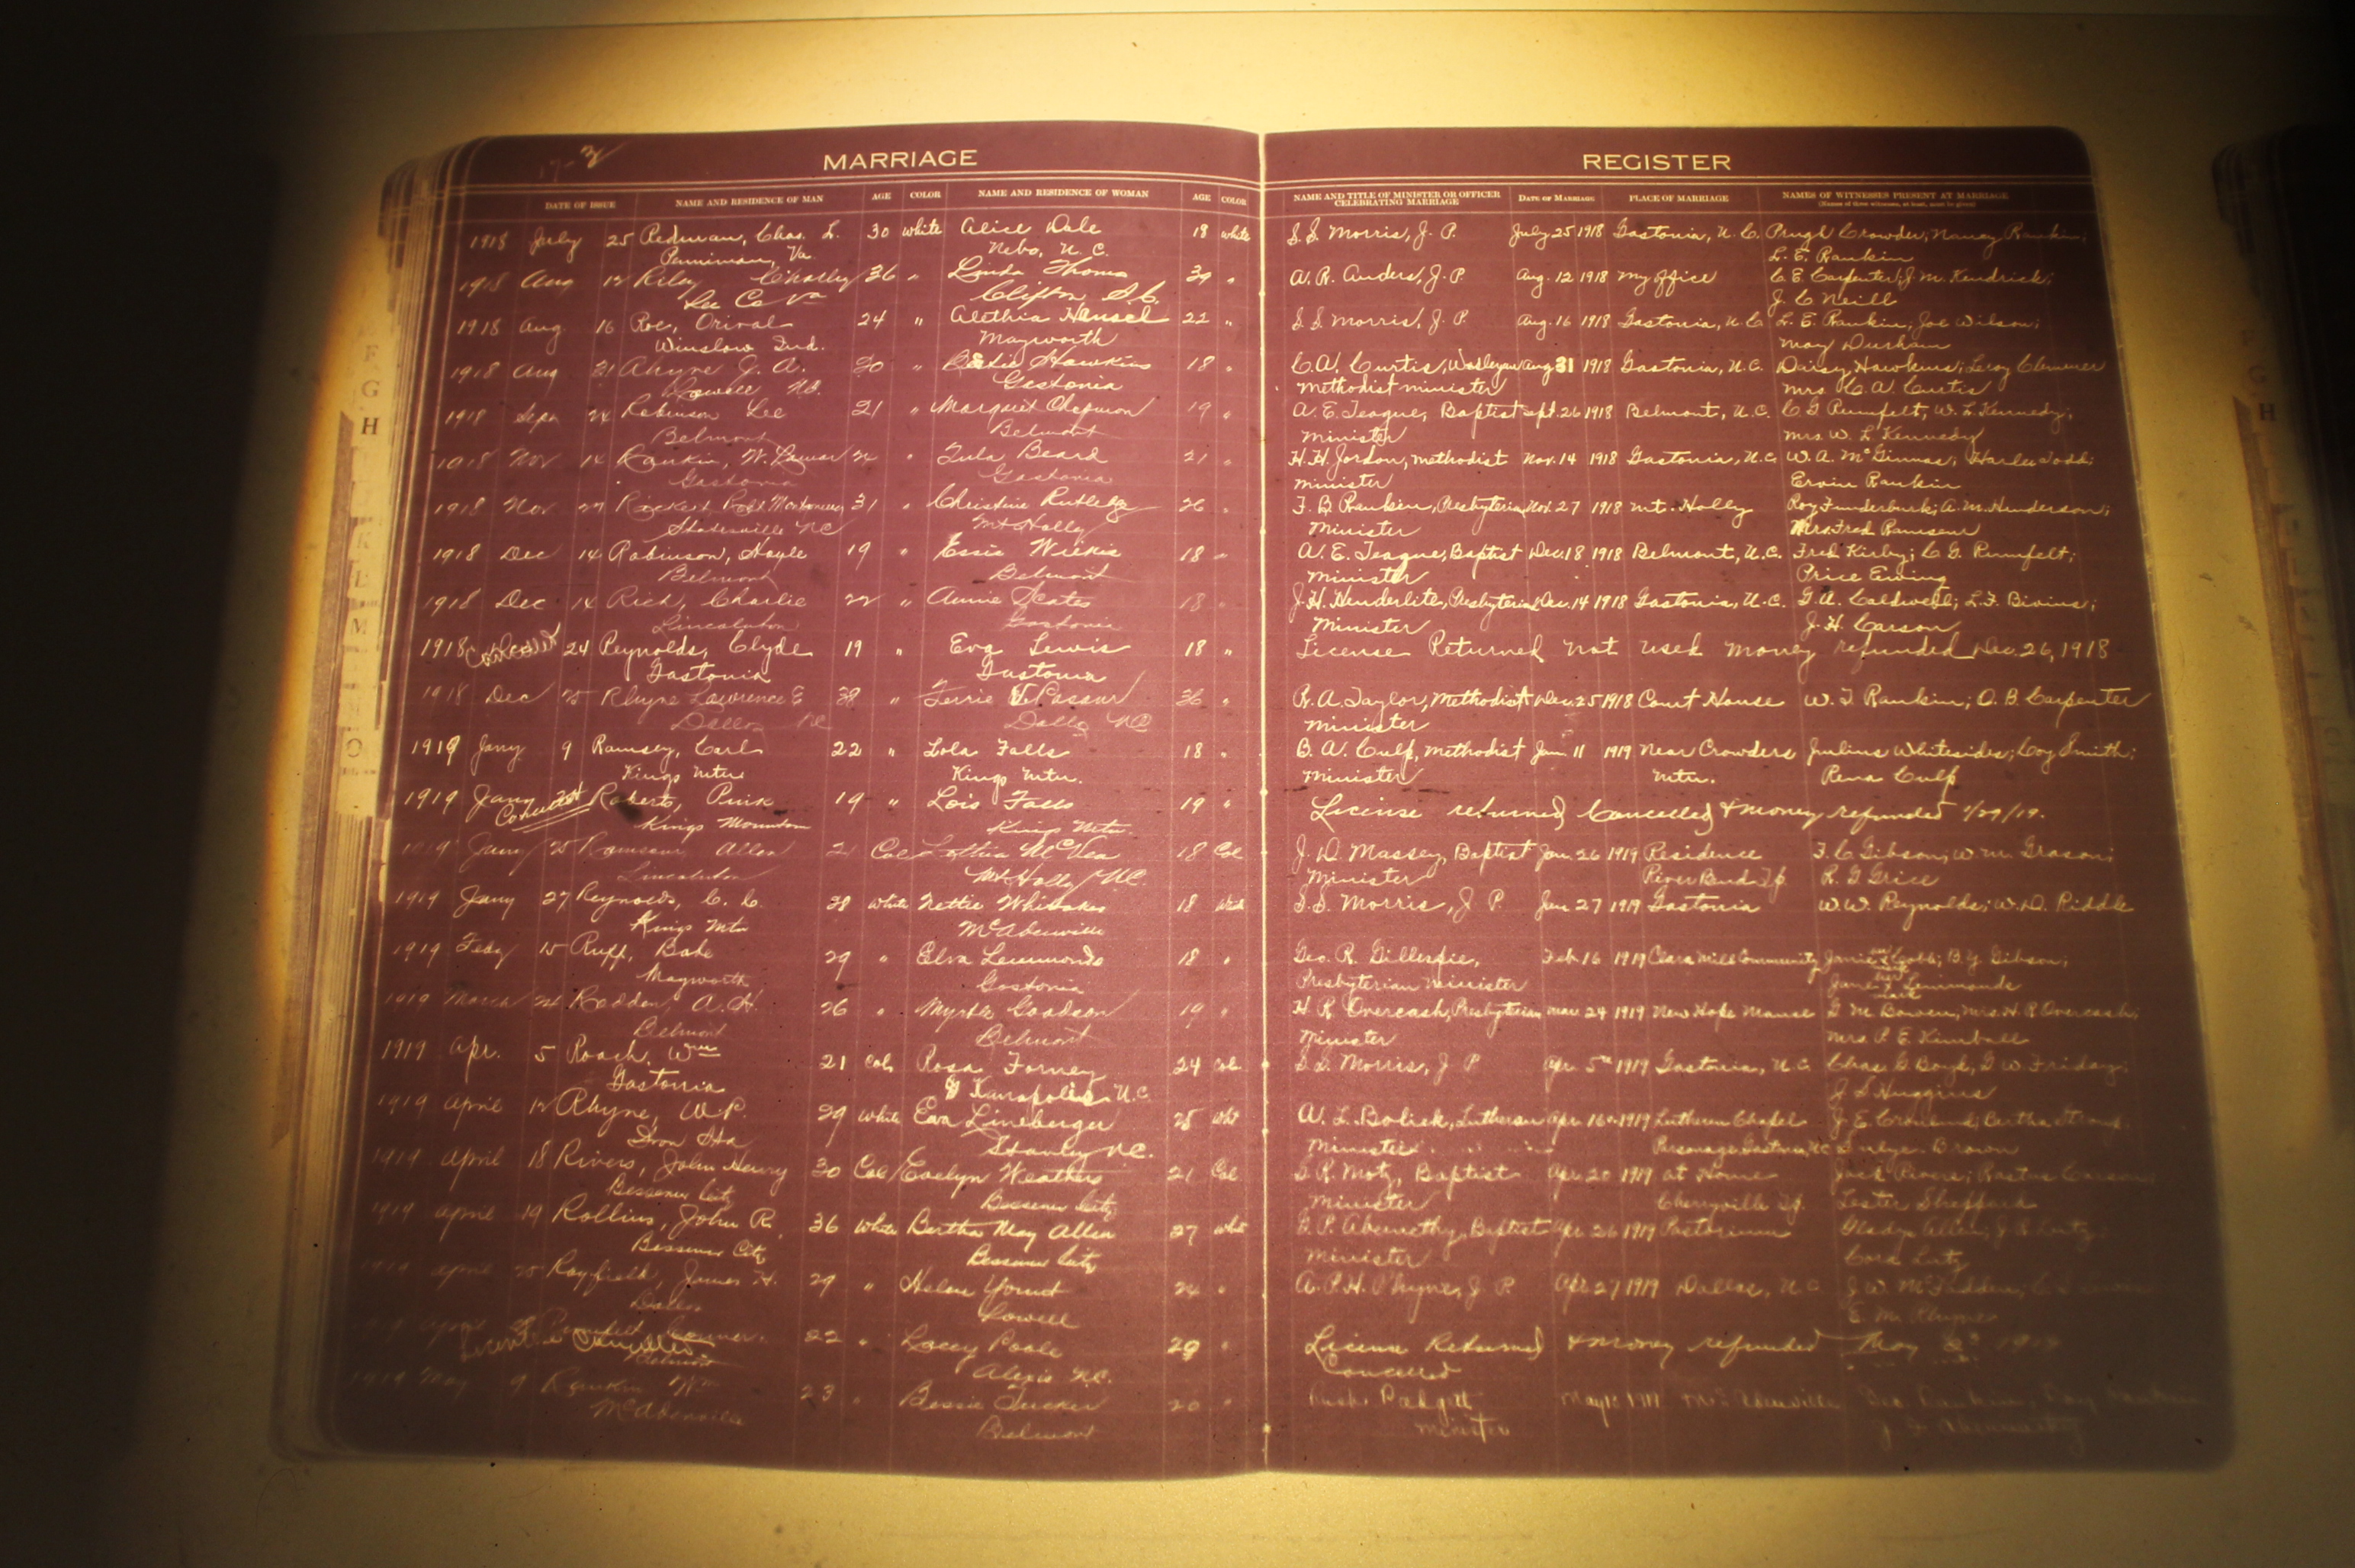 MARRIAGE REGISTER
DATE OF ISSUE NAME AND RESIDENCE OF MAN AGE COLOR NAME AND RESIDENCE OF WOMAN AGE COLOR NAME AND TITLE OF MINISTER OR OFFICER CELEBRATING MARRIAGE DATE OF MARRIAGE PLACE OF MARRIAGE NAMES OF WITNESSES PRESENT AT MARRIAGE
(Names of three witnesses, at least, must be given)
1918 July 25 Redman, Chas. L. 30 white Alice Dale 18 white S. S. Morris, J. P. July 25 1918 Gastonia, N. C. Crowder, Nancy Rankin,
Penniman, Va. Nebo, N. C. L. E. Rankin
1918 Aug 12 Riley Charley 36 " Linda Thoms 39 " A. R. Anders, J. P. Aug. 12 1918 my office C. E. Carpenter, J. M. Kendrick;
Lee Co Va Clifton, S.C. J. C Neill
1918 Aug. 16 Roe, Orival 24 " Alethia Hensel 22 " S. S. Morris, J. P. Aug. 16 1918 Gastonia, N. C L. E. Rankin, Joe Wilson;
Winslow Ind. Mayworth May Durham
1918 Aug 31 Rhyne J. A. 20 " Hawkins 18 " C. A. Curtis, Wesleyan Aug 31 1918 Gastonia, N. C. Daisy Hawkins; Leroy Clemmer
Lowell N.C. Gastonia Methodist minister Mrs. C. A. Curtis
1918 Sept 24 Robinson Lee 21 " Margaret 19 " A. E. Teague, Baptist Sept. 26 1918 Belmont, N. C. C G Rumfelt, W. L. Kennedy;
Belmont Belmont minister Mrs. W. L Kennedy
1918 Nov 14 Rankin, W. 24 " Zula Beard 21 " H. H. Jordon, Methodist Nov. 14 1918 Gastonia, N. C. W. A. McGinnas; Harlee Todd;
Gastonia Gastonia minister Ervin Rankin
1918 Nov 27 Rockett 31 " Christine Rutledge 26 " F. B Rankin, Presbyterian Nov. 27 1918 Mt. Holly Roy Funderburk; A. M. Henderson;
Statesville NC Mt Holly Minister Mrs. Fred Ramseur
1918 Dec 14 Robinson, Hoyle 19 " Essie Wilkie 18 " A. E. Teague, Baptist Dec. 18 1918 Belmont, N. C. Fred Kirby; C G. Rumfelt;
Belmont Belmont Minister Price Ewing
1918 Dec 14 Rich, Charlie 22 " Annie Scates 18 " J. H. Henderlite, Presbyterian Dec. 14 1918 Gastonia, N. C. G. A. Caldwell; L. F. Bivins;
Lincolnton Gastonia Minister J. H. Carson
1918 Cancelled 24 Reynolds, Clyde 19 " Eva Lewis 18 " License Returned not used money refunded Dec. 26, 1918
Gastonia Gastonia
1918 Dec 25 Rhyne Lawrence E 38 " 36 " R. A. Taylor, Methodist Dec. 25 1918 Court House W. T Rankin; O. B. Carpenter
Dallas NC Dallas NC Minister
1919 Jany. 9 Ramsey, Carl 22 " Lola Falls 18 " B. A. Culp, Methodist Jan 11 1919 Near Crowders Julius Whitesides; Coy Smith;
Kings Mtn Kings Mtn. Minister Mtn. Rena Culp
1919 Jany Roberts, Pink 19 " Lois Falls 19 " License returned Cancelled & money refunded 1/29/19.
Cancelled Kings Mountain Kings Mtn.
1919 Jany 25 Ramseur Allen 21 Col McVea 18 Col J. D. Massey, Baptist Jan 26 1919 Residence F. C Gibson; W. M. Grason;
Lincolnton Mt Holly N.C. Minister River Bend Tp. R. G Grice
1919 Jany 27 Reynolds, C. C. 38 white Nettie Whitaker 18 S. S. Morris, J P. Jan 27 1919 Gastonia W. W. Reynolds; W. D. Riddle
Kings Mtn McAdenville
1919 Feby 15 Ruff, Babe 29 " Elva Lemmonds 18 " Geo. R. Gillespie, Feb 16 1919 Clara Mill Community Cobb; B. Y. Gibson;
Mayworth Gastonia Presbyterian Minister Lemmonds
1919 March 24 Redden, A. H. 26 " Myrtle Goodson 19 " H. R Overcash, Presbyterian Mar 24 1919 New Hope Manse G M Bowen, Mrs H. R Overcash;
Belmont Belmont Minister Mrs. P. E. Kimball
1919 Apr. 5 Roach, Wm 21 Col Rosa Forney 24 Col S. S. Morris, J P. Apr. 5th 1919 Gastonia, N. C Chas G. Boyd, G W Friday;
Gastonia Kanapolis N.C. J. S Huggins
1919 April 12 Rhyne, W. P. 29 white Eva Lineberger 25 wht A. L. Bolick, Lutheran Apr 16 1919 Lutheran Chapel
Iron Sta Stanly N.C. Minister Parsonage Gastonia, NC Brown
1919 April 18 Rivers, John Henry 30 Col Evelyn Weathers 21 Col Motz, Baptist Apr 20 1919 at Home
Bessemer City Bessemer City Minister Cherryville Tp. Lester Sheppard
1919 April 19 Rollins, John R. 36 white Bertha May Allen 27 wht Abernethy, Baptist Apr 26 1919 Pastorium
Bessemer City Bessemer City Minister Cora Lutz
April 25 Rayfield, James H. 29 " Helen Yount 24 " A. P. H. Rhyne, J. P. Apr 27 1919 Dallas, N. C
Dallas Lowell E. M. Rhyne
April 22 " Lacey Poole 29 " License Returned & money refunded May
License Cancelled Belmont Alexis N.C. Cancelled
1919 May 9 Rankin Wm 23 " Bessie Tucker 20 " Padgett May 1919 McAdenville
McAdenville Belmont minister
F
G
H
K
L
M
O